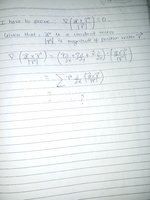 I have to prove ∇·(a⃗ × r⃗ / |r⃗|ⁿ) = 0.
Given that:- a⃗ is a constant vector
|r⃗| is magnitude of position vector r⃗
∇·(a⃗ × r⃗ / |r⃗|ⁿ) = (i ∂/∂x + j ∂/∂y + k ∂/∂z)·(a⃗ × r⃗ / |r⃗|ⁿ)
= ∑ i ∂/∂x (a⃗ × r⃗ / |r⃗|ⁿ)
= ?